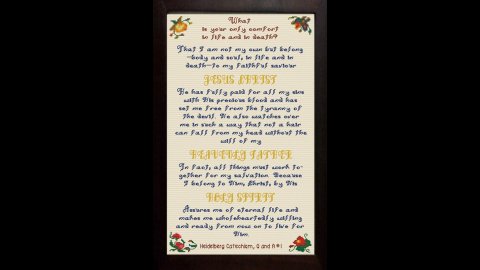 What
is your only comfort
in life and in death?
That I am not my own but belong
—body and soul, in life and in
death—to my faithful saviour
JESUS CHRIST
He has fully paid for all my sins
with His precious blood and has
set me free from the tyranny of
the devil. He also watches over
me in such a way that not a hair
can fall from my head without the
will of my
HEAVENLY FATHER
In fact, all things must work to-
gether for my salvation. Because
I belong to Him, Christ, by His
HOLY SPIRIT
Assures me of eternal life and
makes me wholeheartedly willing
and ready from now on to live for
Him.
Heidelberg Catechism, Q and A #1